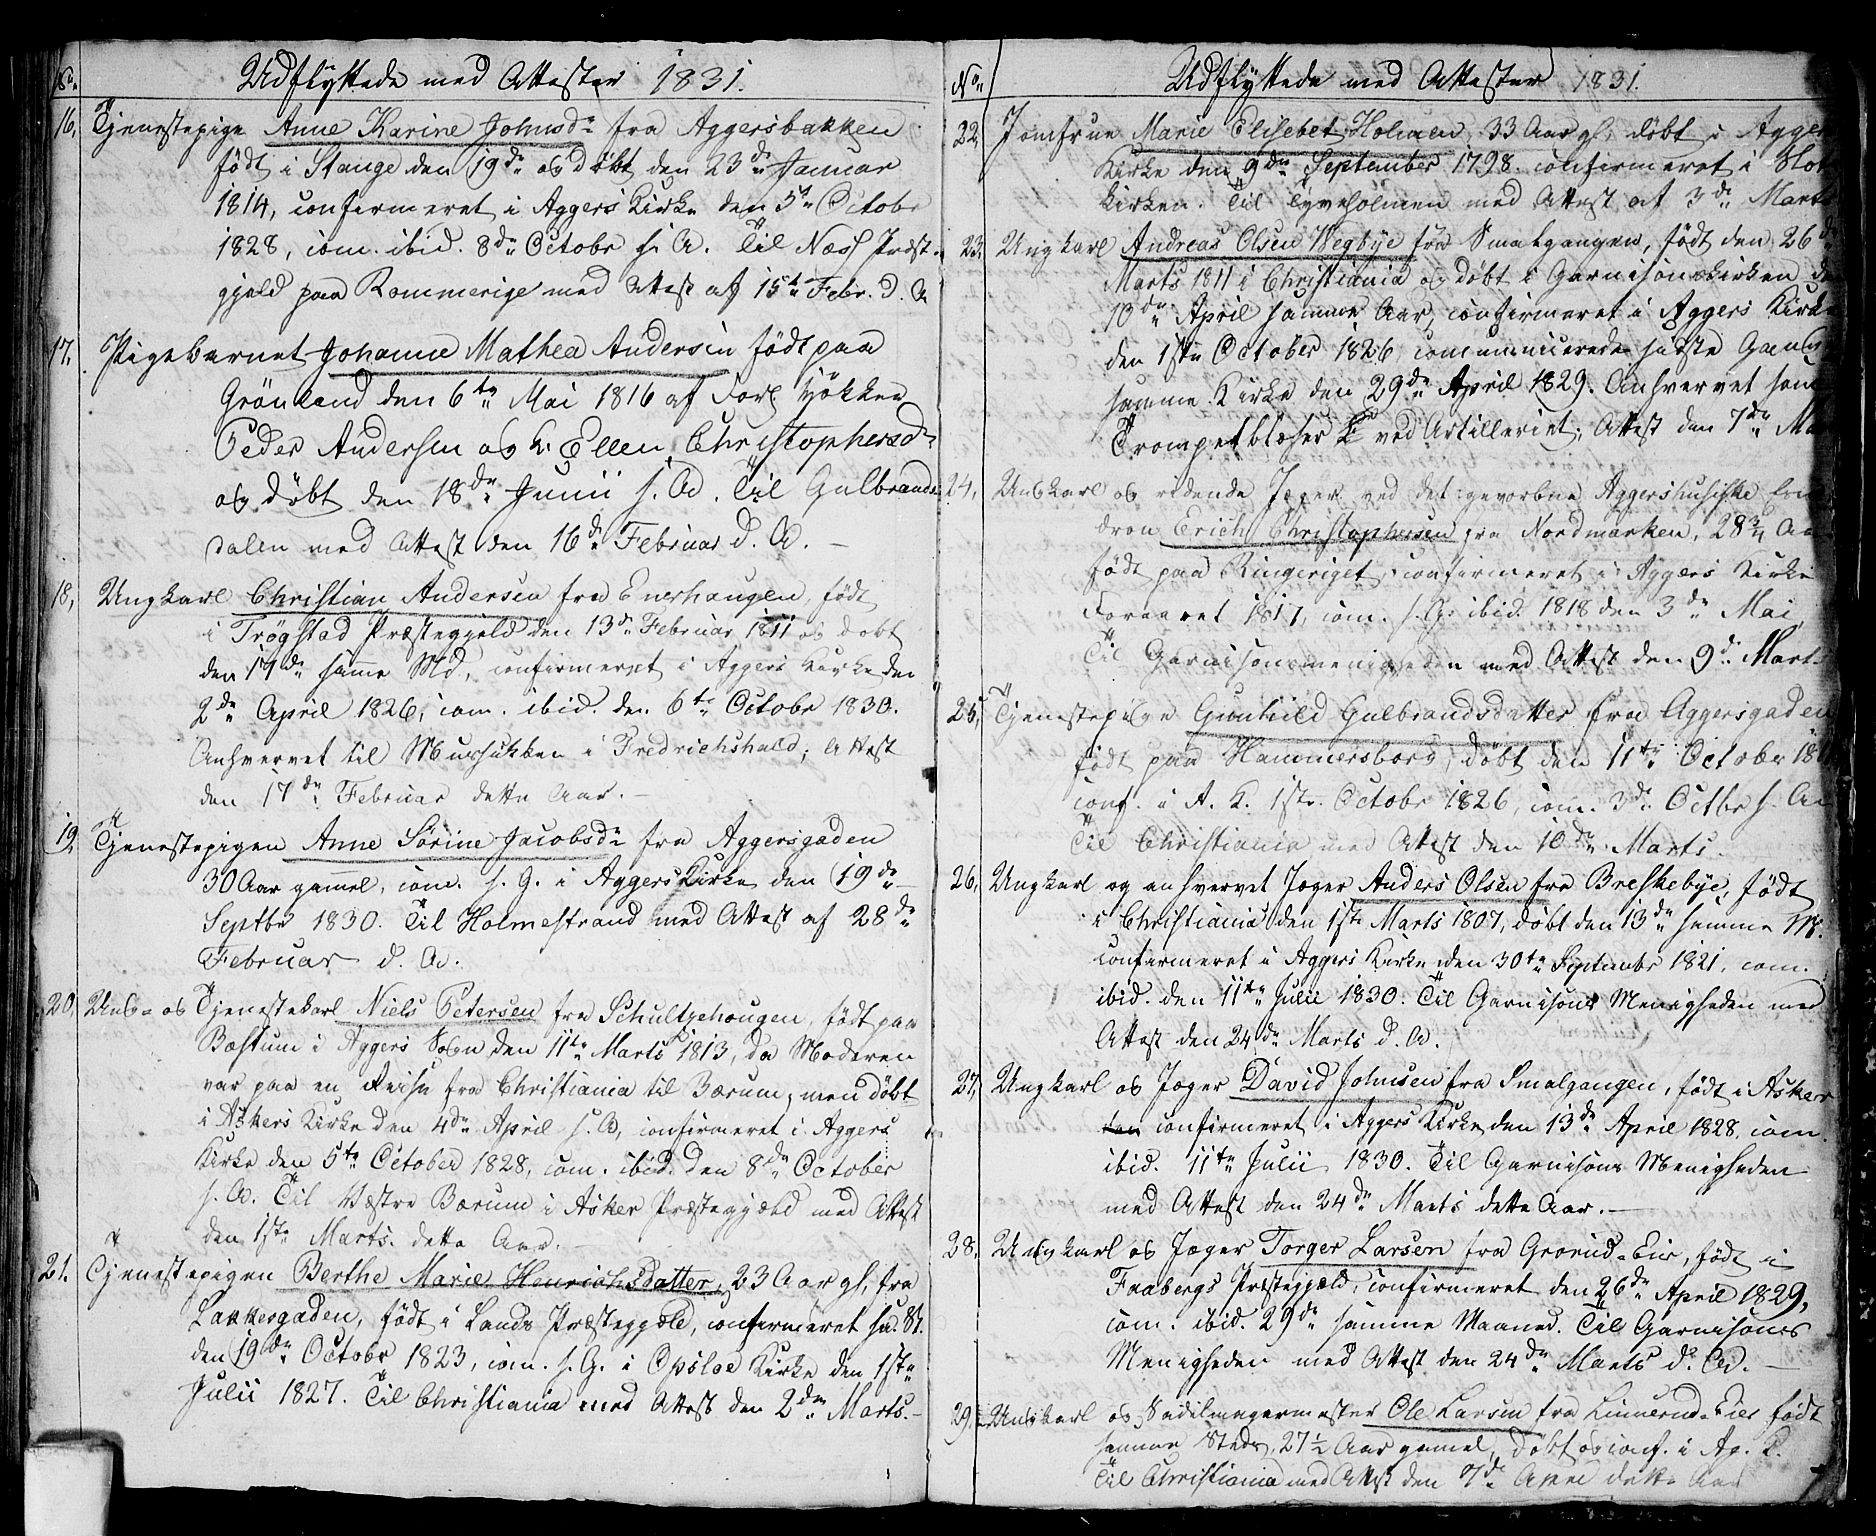 No.
Udflyttede med Attester 1831.
16, Tjenestepige Anne Karine Johnsdr fra Aggersbakken
født i Stange den 19de og døbt den 23de Januar
1814, confirmeret i Aggers Kirke den 5te Octobr
1828, com. ibid. 8de Octobr s. A. Til Næss Præst-
gjeld paa Rommerige med Attest af 15de Febr. d. A
17. Pigebarnet Johanne Mathea Andersen født paa
Grönland den 6te Mai 1816 af Forl
Peder Andersen og K. Ellen Christophersdr
og døbt den 18de Junii s. A. Til Gulbrands-
dalen med Attest den 16de Februar d. A. —
18, Ungkarl Christian Andersen fra Enerhaugen, født
i Trøgstad Præstegjeld den 13de Februar 1811 og døbt
den 17de samme Md, confirmeret i Aggers Kirke den
2de April 1826, com. ibid. den 6te Octobr 1830.
Anhvervet til Mursikken i Fredrichshald; Attest
den 17de Februar dette Aar. —
19 Tjenestepigen Anne Sörine Jacobsdr fra Aggersgaden
30 Aar gammel, com. s. G. i Aggers Kirke den 19de
Septbr 1830. Til Holmestrand med Attest af 28de
Februar d. A.
20, Ung- og Tjenestekarl Niels Petersen fra Schultzehougen, født paa
Bæstum i Aggers Sogn den 11te Marts 1813, da Moderen
var paa en Reise fra Christiania til Bærum, men døbt
i Askers Kirke den 4de April s. A, confirmeret i Aggers
Kirke den 5te October 1828, com. ibid. den 8de October
s. A. Til Væstre Bærum i Asker Præstegjæld med Attest
den 1ste Marts dette Aar. —
21. Tjenestepigen Berthe Marie Henrichsdatter, 23 Aar gl, fra
Lakkergaden, født i Lands Præstegjæld, confirmeret sa. St.
den 19de Octobr 1823, com. s. G. i Opsloe Kirke den 1ste
Julii 1827. Til Christiania med Attest den 2den Marts. —
No.
Udflyttede med Attester 1831.
22, Jomfrue Marie Elisebet Holmen, 33 Aar gl, døbt i Agger
Kirke den 9de September 1798 confirmeret i
Kirken. Til Tyveholmen med Attest af 3de Marts
23. Ungkarl Andreas Olsen Wegbye fra Smalgangen, født den 26de
Marts 1811 i Christiania og døbt i Garnisonskirken d
13de April samme Aar, confirmeret i Aggers Kirke
den 1ste October 1826, communicerede sidste Gang
samme Kirke den 29de April 1829. Anhvervet som
Trompetblæser ved Artilleriet; Attest den 7de Ma
24, Ungkarl og ridende Jæger ved det gevorbne Aggershusiske
dron Erich Christophersen fra Nordmarken, 28 3/4 Aa
født paa Ringeriget, confirmeret i Aggers Kirke
Foraaret 1817, com. s. G. ibid. 1818 den 3de Mai,
Til Garnisonsmenigheden med Attest den 9de Marts
25, Tjenestepige Gunhild Gulbrandsdatter fra Aggersgaden
født paa Hammersborg, døbt den 11te October 181
conf. i A. K. 1ste Octobr 1826, com. 3de Octbr s. A
Til Christiania med Attest den 10de Marts.
26, Ungkarl og anhvervet Jæger Anders Olsen fra Breskebye, født
i Christiania den 1ste Marts 1807, døbt den 13de samme M.
confirmeret i Aggers Kirke den 30te Septembr 1821, com.
ibid. den 11te Julii 1830. Til Garnisons Menigheden med
Attest den 24de Marts d. A.
27, Ungkarl og Jæger David Johnsen fra Smalgangen, født i Asker
confirmeret i Aggers Kirke den 13de April 1828, com.
ibid. 11te Julii 1830. Til Garnisons Menigheden
med Attest den 24de Marts dette Aar. —
28, Ungkarl og Jæger Torger Larsen fra Grorud-Eie, født i
Faabergs Præstegjæld, confirmeret den 26de April 1829,
com. ibid. 29de samme Maaned. Til Garnisons
Menigheden med Attest den 24de Marts d. A. —
29. Ungkarl og Sadelmagermester Ole Larsen fra Linnerud-Eier født
samme Sted, 27 1/2 Aar gamel, døbt og conf. i Ag. K.
Til Christiania med Attest den 7de April dette Aar